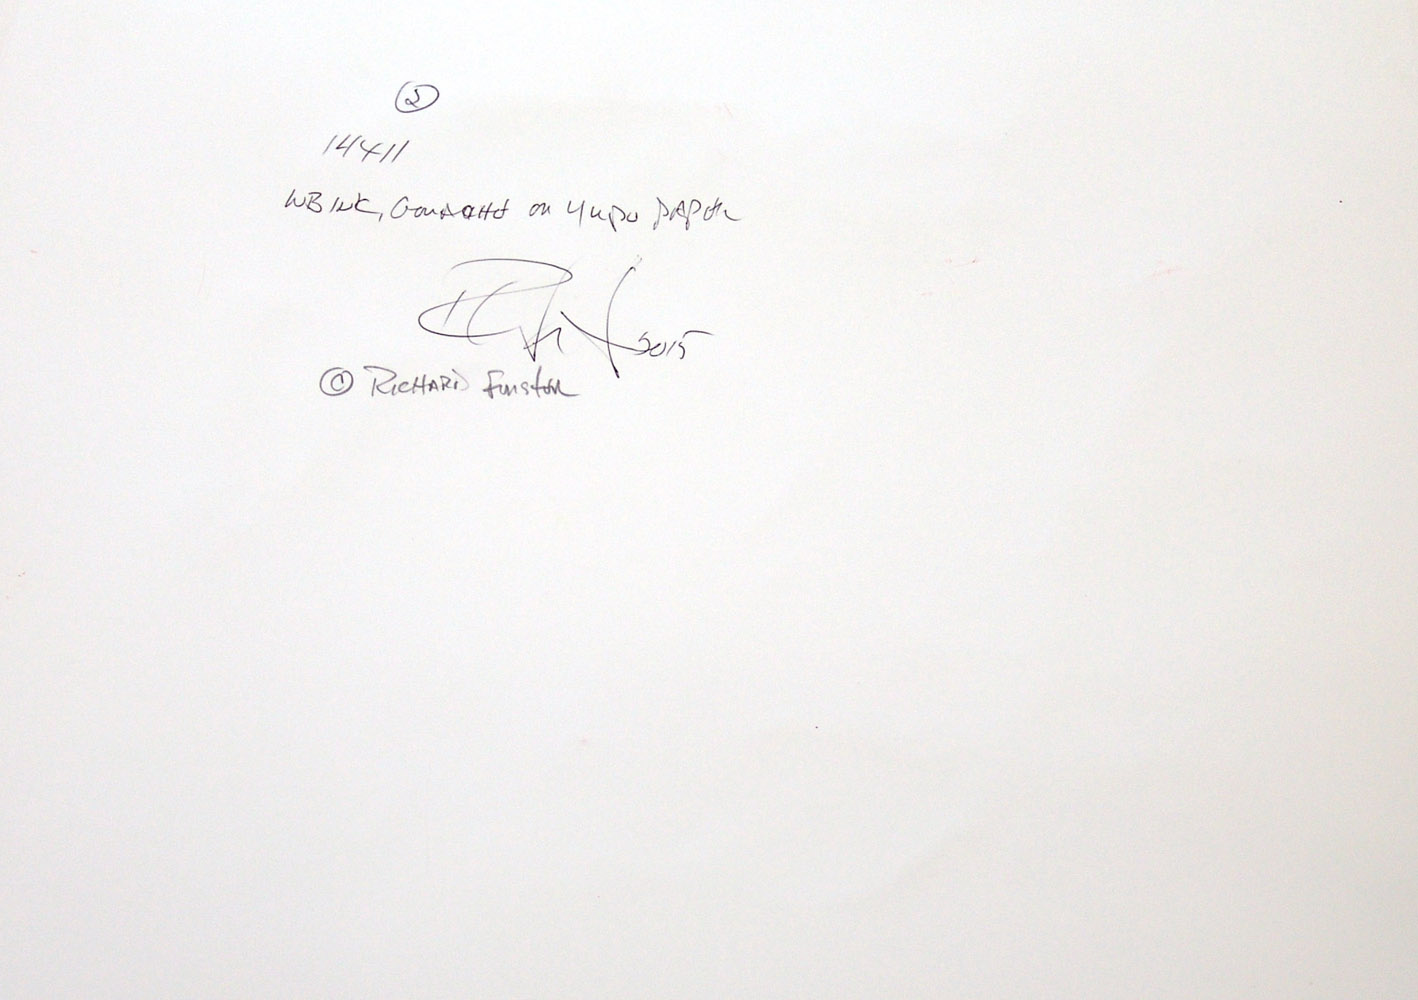 2
14411
WB INK, GOUACHE on Yupo PAPER
2015
© RICHARD Funston